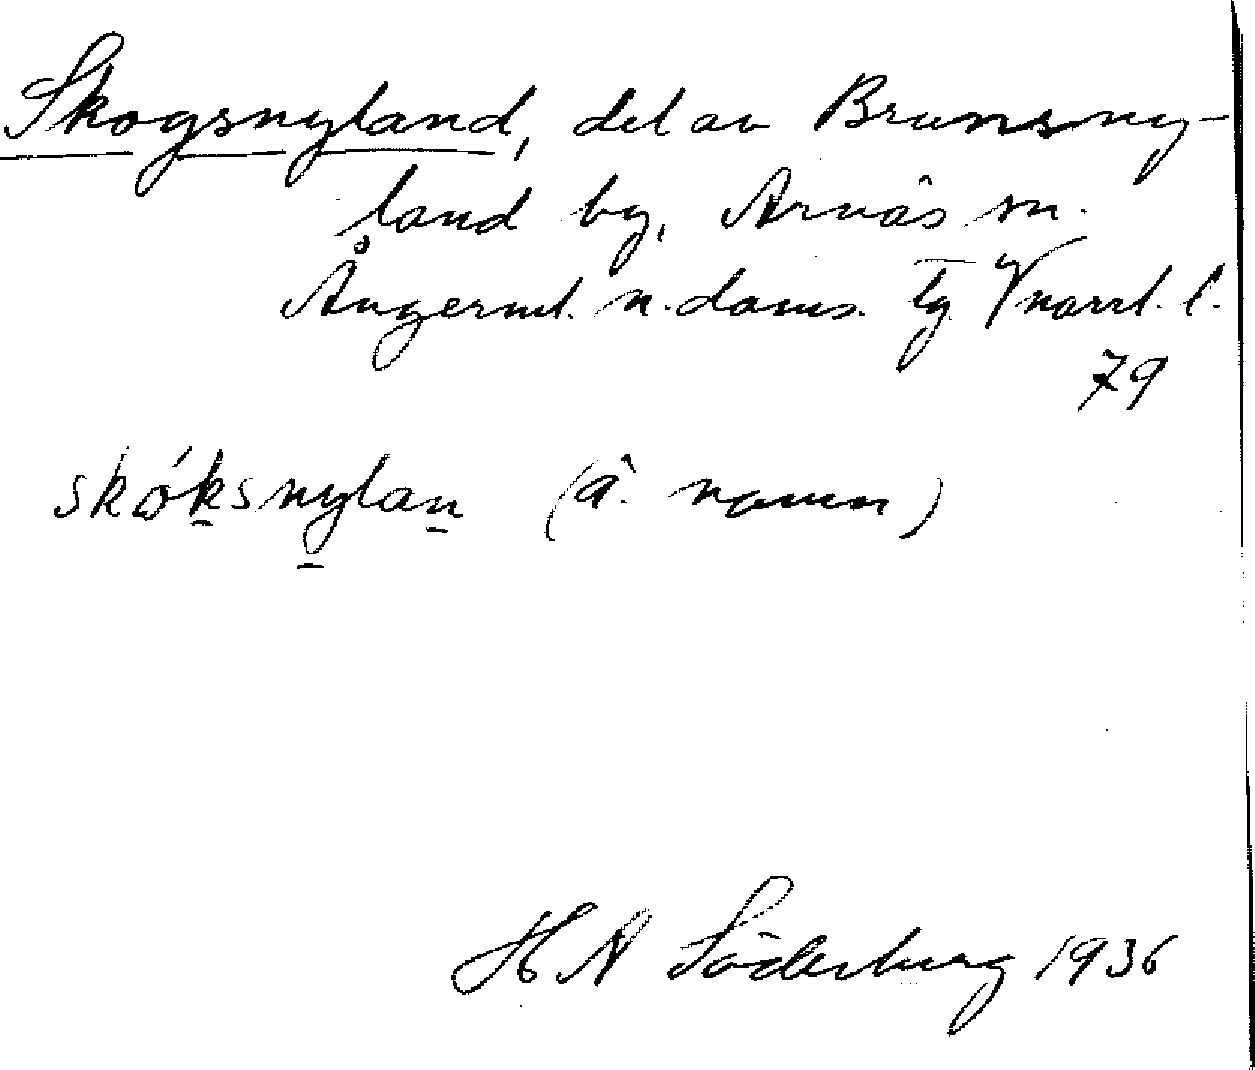 Skogsnyland, del av Brunsny-
land by, Arnäs sn.
Ångerml. n. doms. Tg Vnorrl. l.
79
skóksnylan (å. namn)
H A Söderberg 1936